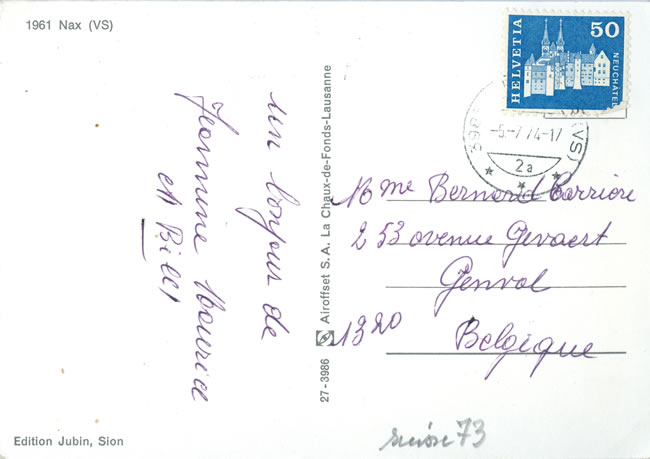 1961 Nax (VS)
un bonjour de
Jeannine Maurice
et Billy
Edition Jubin, Sion
27-3986 Airoffset S.A. La Chaux-de-Fonds-Lausanne
HELVETIA
50
NEUCHÂTEL
398
(VS)
-5-7 74-17
2a
Mme Bernard Carrière
253 avenue Gevaert
Genval
1320
Belgique
suisse 73